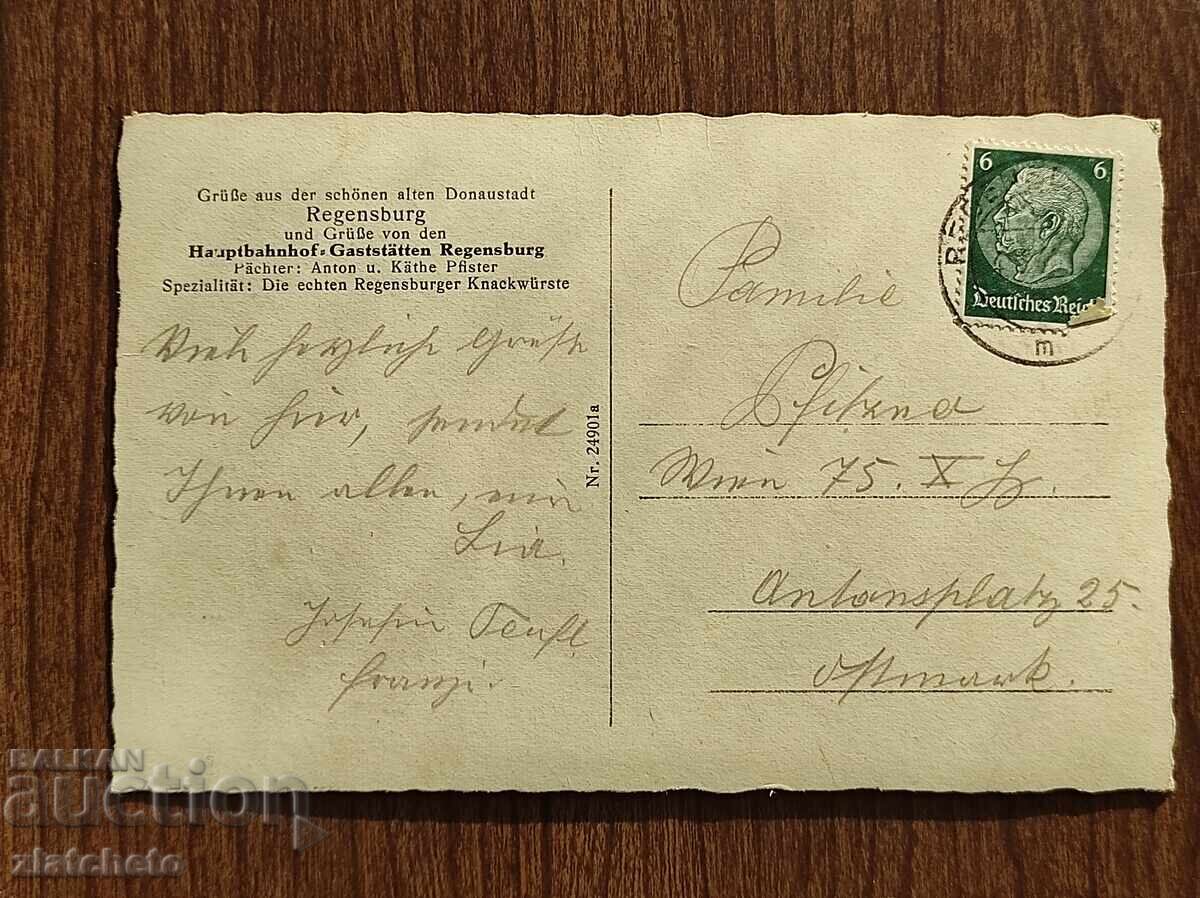 Grüße aus der schönen alten Donaustadt
Regensburg
und Grüße von den
Hauptbahnhof-Gaststätten Regensburg
Pächter: Anton u. Käthe Pfister
Spezialität: Die echten Regensburger Knackwürste
Viele herzliche Grüße
von hier, sendet
Ihnen allen,
Josefin
Franzi.
Nr. 24901a
6 6
Deutsches Reich
m
Familie
Wien 75. X
Antonsplatz 25.
Ostmark.
BALKAN
auction
zlatcheto